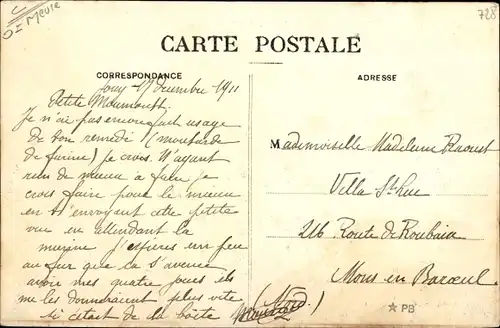 C
OI Meuse
728
CARTE POSTALE
CORRESPONDANCE
ADRESSE
Jouy 17 décembre 1911
Petite
Je n'ai pas encore fait usage
de ton remede (moutarde
de farine) je crois. N'ayant
rien de mieux à faire je
crois faire pour le mieux
en t'envoyant cette petite
vue en attendant la
mienne j'espères un peu
au fur que ca s'avance
avoir mes quatre jours ils
me les donneraient plus vite
si cétait de la boîte
Mademoiselle Madeleine Raoust
Villa St Luc
216 Route de Roubaix
Mons en Barœul
PB